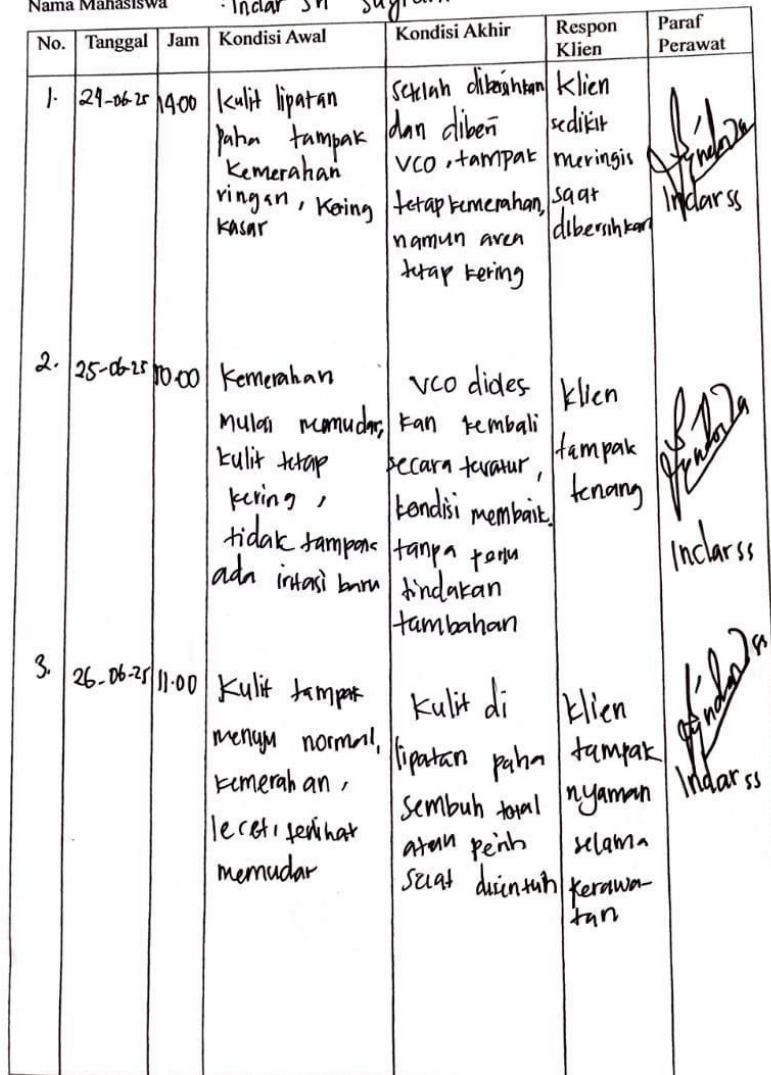 Nama Mahasiswa : Indar Sri
No. Tanggal Jam Kondisi Awal Kondisi Akhir Respon Klien Paraf Perawat
1. 24-06-25 14.00
Kulit lipatan
paha tampak
kemerahan
ringan, kering
kasar
Setelah dibersihkan
dan diberi
VCO, tampak
tetap kemerahan,
namun area
tetap kering
Klien
sedikit
meringis
saat
dibersihkan
Indar ss
2. 25-06-25 10.00
Kemerahan
mulai memudar,
kulit tetap
kering,
tidak tampak
ada iritasi baru
VCO dioles
kan kembali
secara teratur,
kondisi membaik
tanpa perlu
tindakan
tambahan
klien
tampak
tenang
Indar ss
3. 26-06-25 11.00
Kulit tampak
menuju normal,
kemerahan,
lecet, terlihat
memudar
Kulit di
lipatan paha
sembuh total
atau perih
saat disentuh
Klien
tampak
nyaman
selama
perawa-
tan
Indar ss